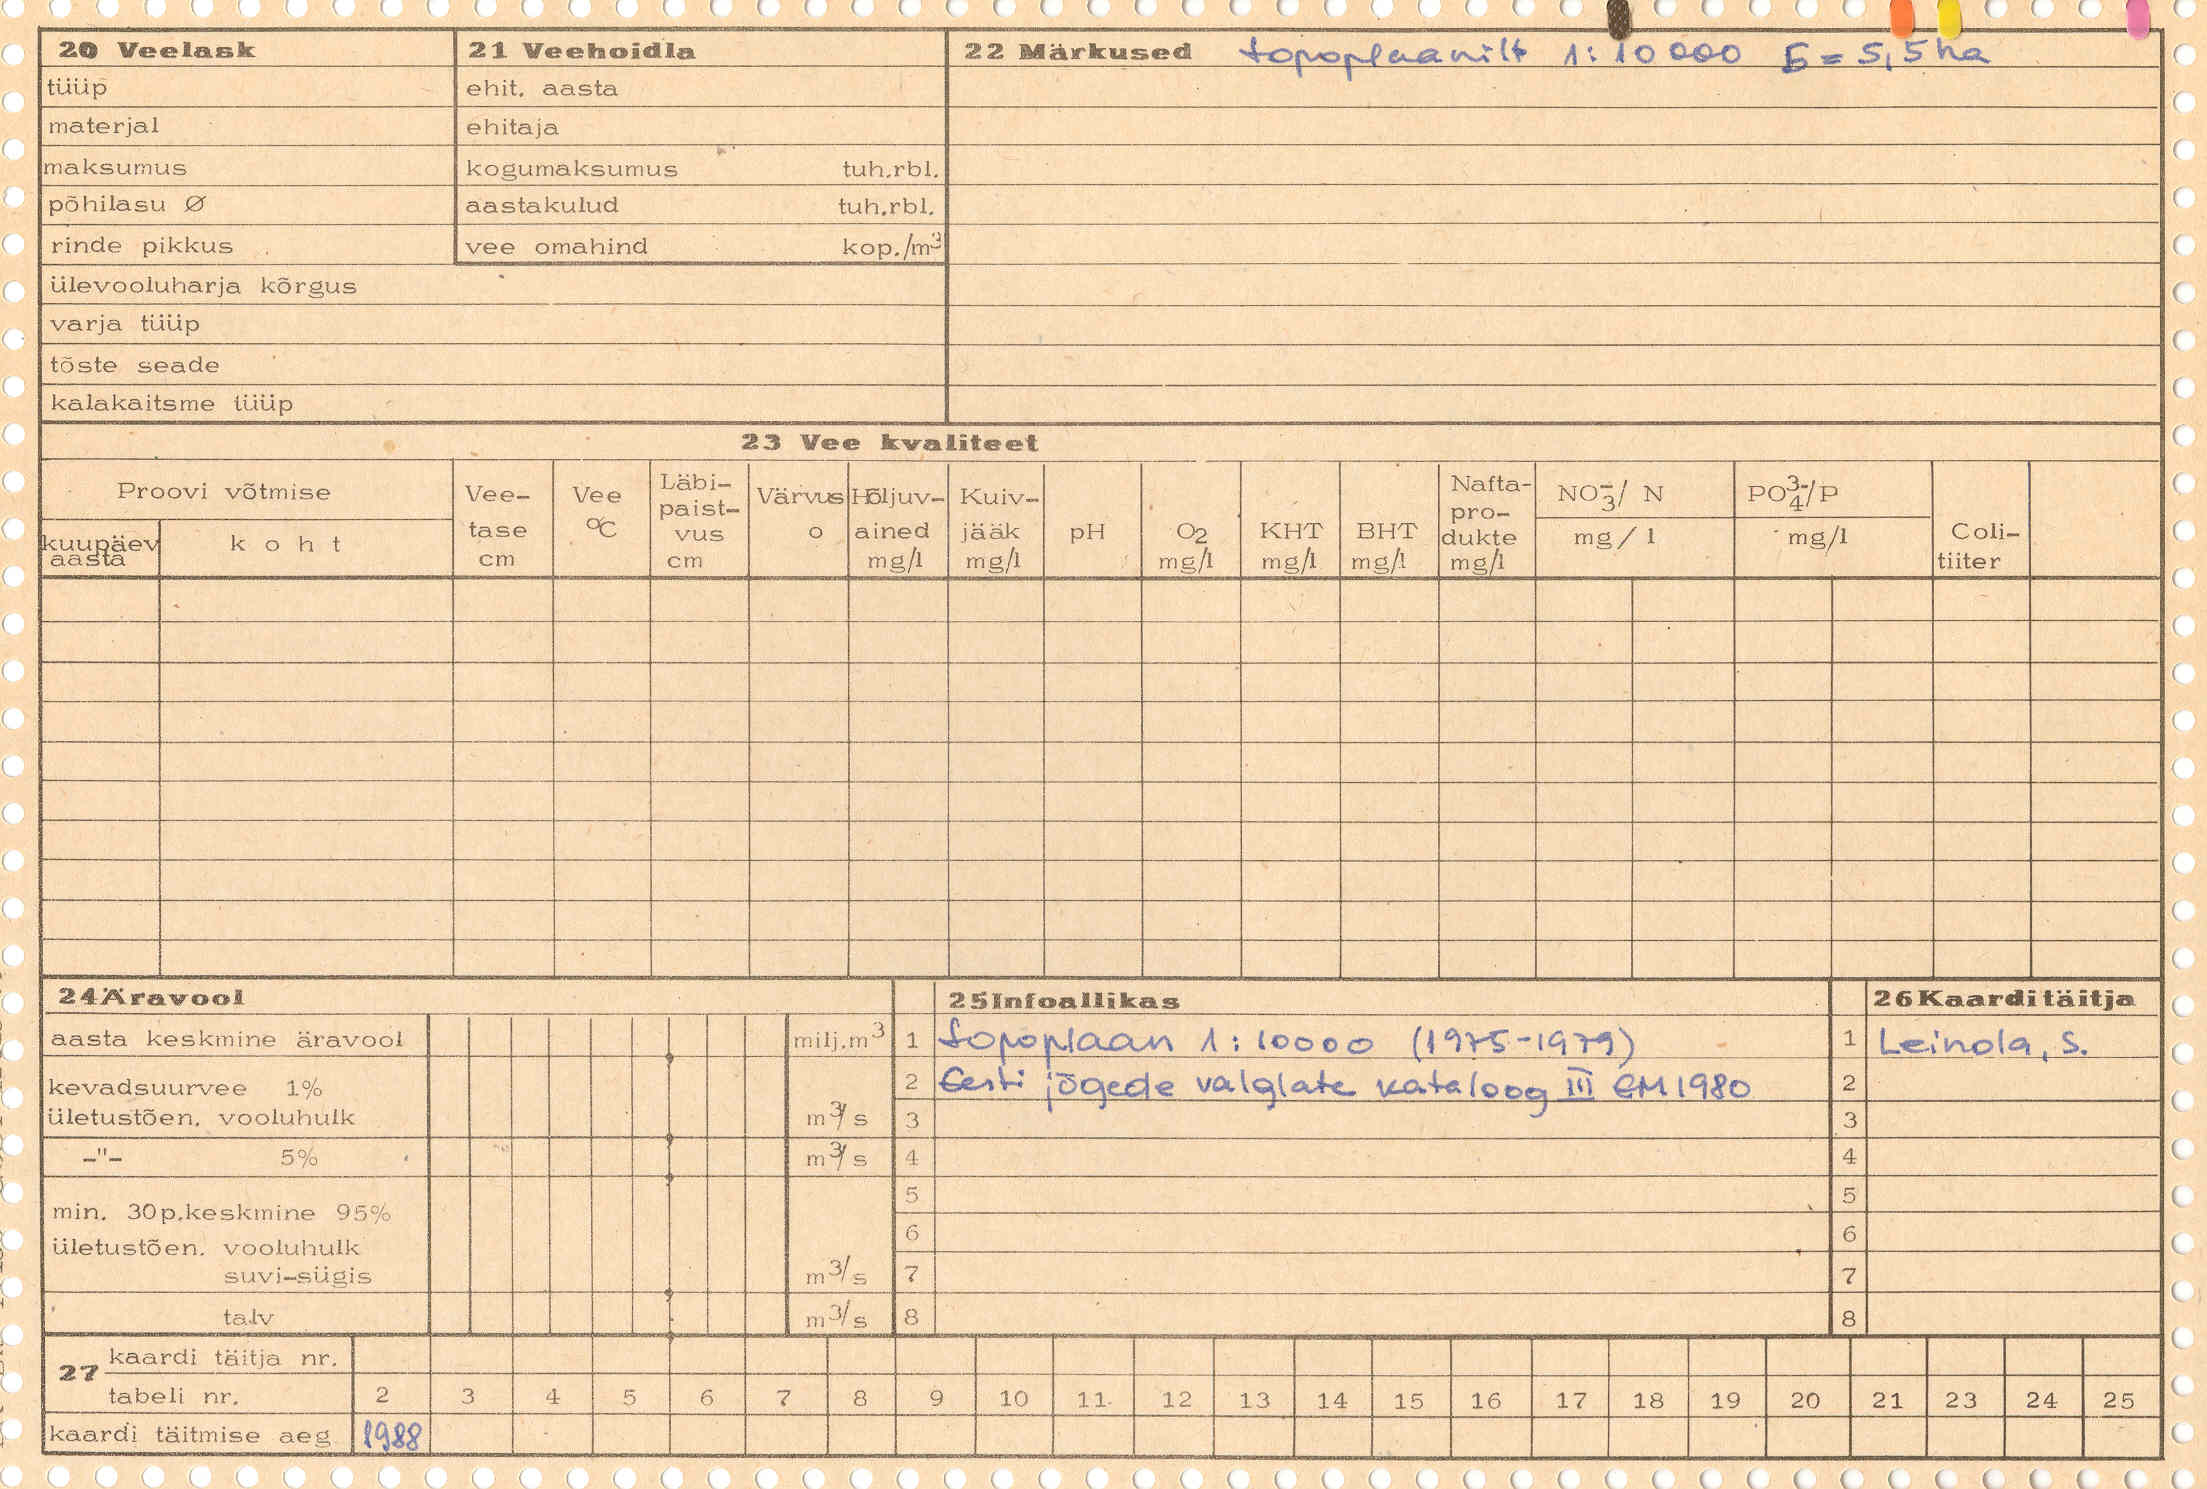 20 Veelask
tüüp
materjal
maksumus
põhilasu Ø
rinde pikkus
ülevooluharja kõrgus
varja tüüp
tõste seade
kalakaitsme tüüp
21 Veehoidla
ehit. aasta
ehitaja
kogumaksumus tuh.rbl.
aastakulud tuh.rbl.
vee omahind kop./m³
22 Märkused topoplaanilt 1:10 000 F = 5,5 ha
23 Vee kvaliteet
Proovi võtmise
kuupäev
aasta
koht
Vee-
tase
cm
Vee
°C
Läbi-
paist-
vus
cm
Värvus
o
Hõljuv-
ained
mg/l
Kuiv-
jääk
mg/l
pH
O₂
mg/l
KHT
mg/l
BHT
mg/l
Nafta-
pro-
dukte
mg/l
NO₃⁻/ N
mg/l
PO₄³⁻/P
mg/l
Coli-
tiiter
24 Äravool
aasta keskmine äravool milj.m³
kevadsuurvee 1%
ületustõen. vooluhulk m³/s
-"- 5% m³/s
min. 30p.keskmine 95%
ületustõen. vooluhulk
suvi-sügis m³/s
talv m³/s
25 Infoallikas
1 topoplaan 1:10000 (1975-1979)
2 Eesti jõgede valglate kataloog III EM 1980
3
4
5
6
7
8
26 Kaarditäitja
1 Leinola, S.
2
3
4
5
6
7
8
27
kaardi täitja nr.
tabeli nr. 2 3 4 5 6 7 8 9 10 11. 12 13 14 15 16 17 18 19 20 21 23 24 25
kaardi täitmise aeg 1988